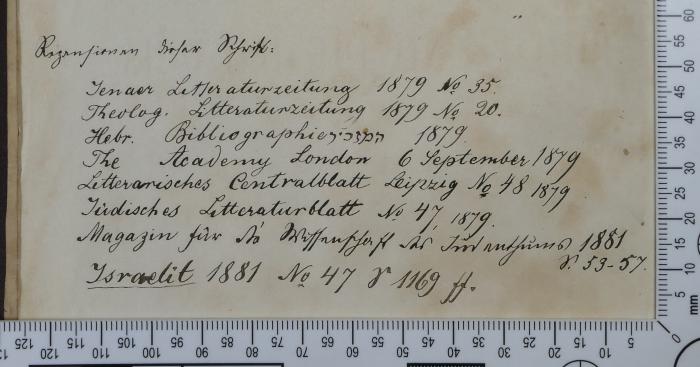 Rezensionen dieser Schrift:
Jenaer Litteraturzeitung 1879 No 35.
Theolog. Litteraturzeitung 1879 No 20.
Hebr. Bibliographie המזכיר 1879.
The Academy London 6 September 1879
Litterarisches Centralblatt Leipzig No 48 1879
Jüdisches Litteraturblatt No 47, 1879.
Magazin für die Wissenschaft des Judenthums 1881
S. 53-57.
Israelit 1881 No 47 S 1169 ff.
125 120 115 110 105 100 95 90 85 80 75 70 65 60 55 50 45 40 35 30 25 20 15 10 5 0
60 55 50 45 40 35 30 25 20 15 10 5 mm